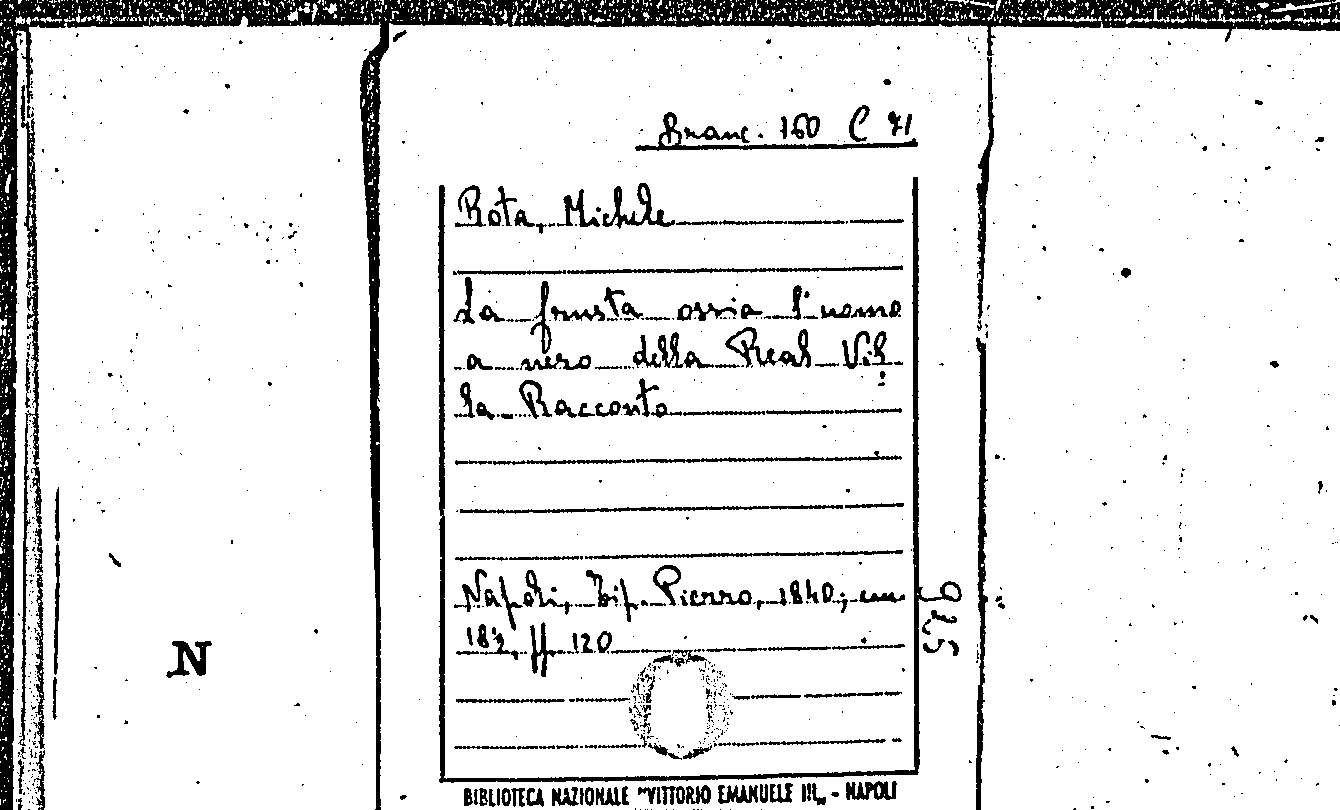 Branc. 160 C 71
Rota, Michele
La frusta ossia l'uomo
a nero della Real Vil
la - Racconto
Napoli, Tip. Pierro, 1840; cm
18½, ff. 120
N
BIBLIOTECA NAZIONALE "VITTORIO EMANUELE III„ - NAPOLI